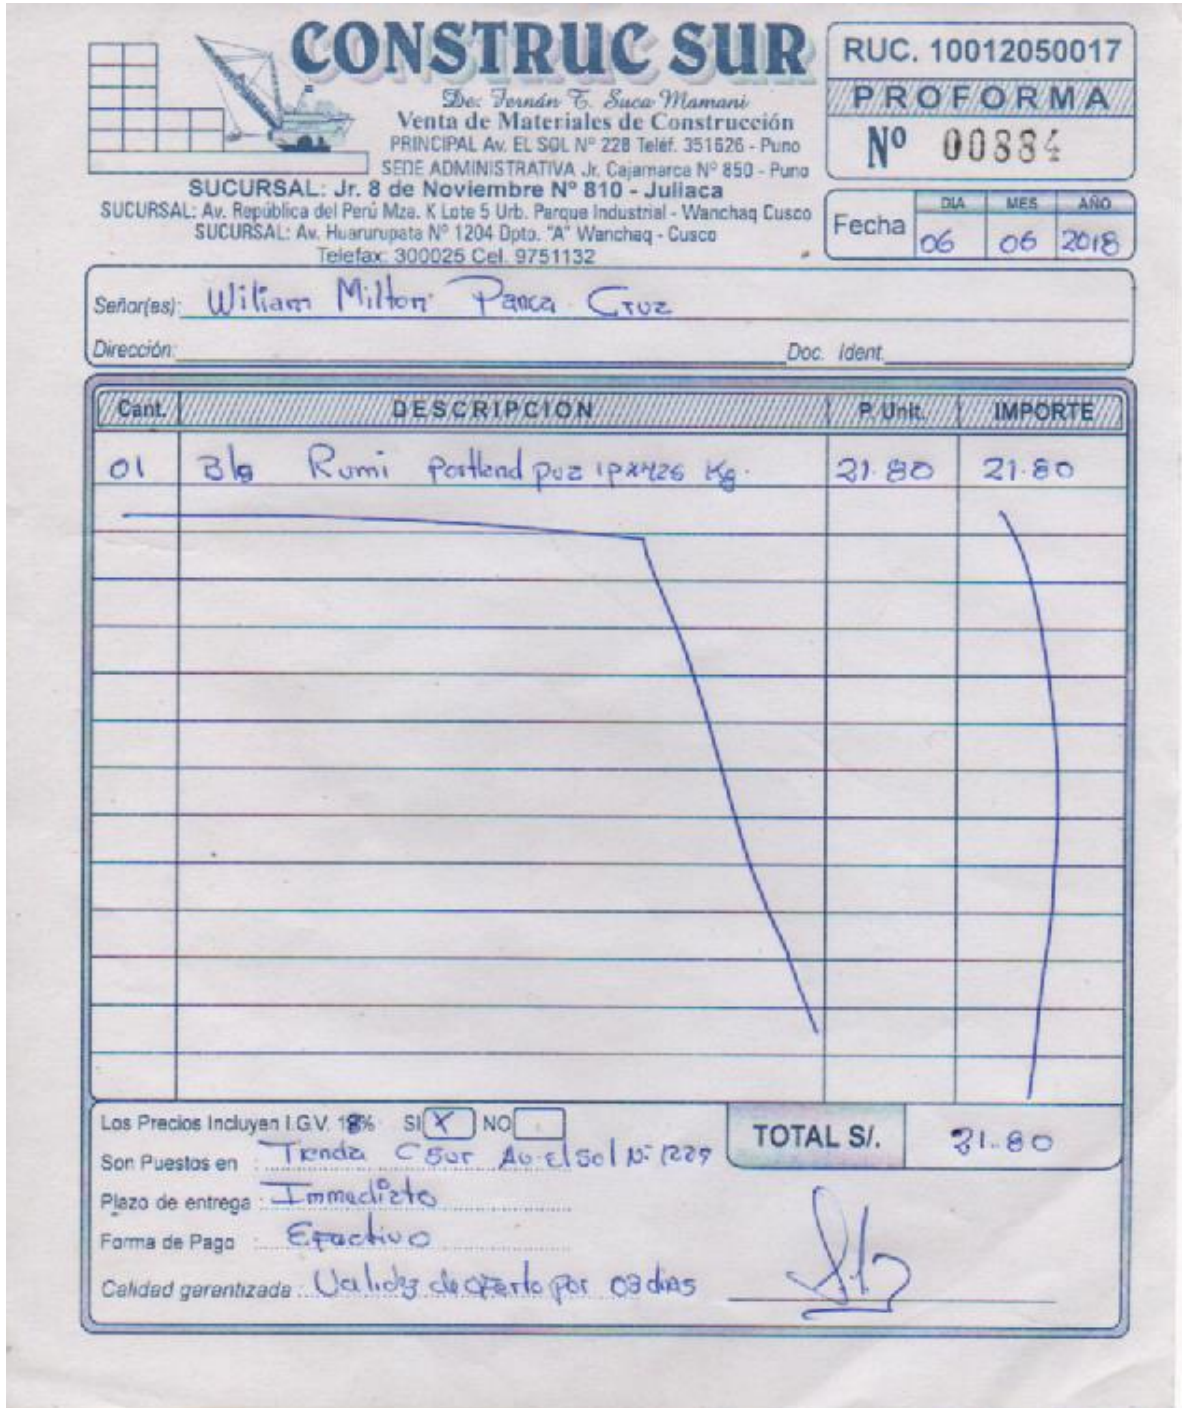 CONSTRUC SUR
De: Fernán T. Suca Mamani
Venta de Materiales de Construcción
PRINCIPAL Av. EL SOL Nº 228 Teléf. 351626 - Puno
SEDE ADMINISTRATIVA Jr. Cajamarca Nº 850 - Puno
SUCURSAL: Jr. 8 de Noviembre Nº 810 - Juliaca
SUCURSAL: Av. República del Perú Mza. K Lote 5 Urb. Parque Industrial - Wanchaq Cusco
SUCURSAL: Av. Huarurupata Nº 1204 Dpto. "A" Wanchaq - Cusco
Telefax: 300025 Cel. 9751132
RUC. 10012050017
PROFORMA
Nº 00884
Fecha DIA MES AÑO
06 06 2018
Señor(es): Wiliam Milton Panca Cruz
Dirección: Doc. Ident.
Cant. DESCRIPCION P. Unit. IMPORTE
01 Bls Rumi Portland puz 21.80 21.80
Los Precios Incluyen I.G.V. 18% SI X NO
TOTAL S/. 21.80
Son Puestos en : Tienda C Sur Av. el Sol
Plazo de entrega : Immediato
Forma de Pago : Efactivo
Calidad garantizada : Validez de oferta por dias